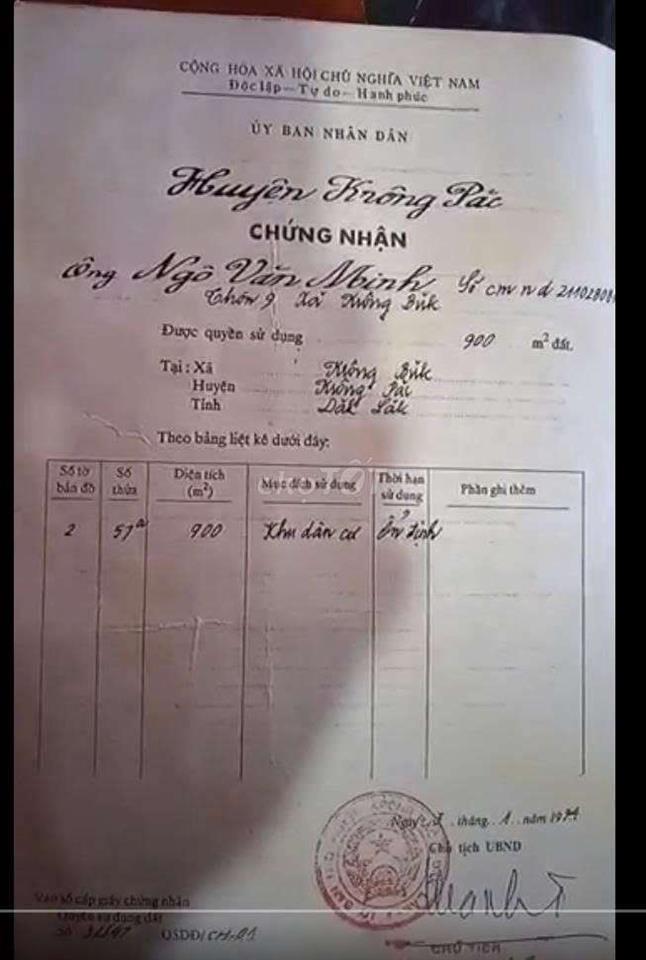 CỘNG HÒA XÃ HỘI CHỦ NGHĨA VIỆT NAM
Độc lập - Tự do - Hạnh phúc
ỦY BAN NHÂN DÂN
Huyện Krông Pắc
CHỨNG NHẬN
Công Ngô Văn Minh Số cmnd
Thôn 9 Xã Krông Búk
Được quyền sử dụng 900 m² đất.
Tại: Xã Krông Búk
Huyện Krông Pắc
Tỉnh Dăk Lăk
Theo bảng liệt kê dưới đây:
Số tờ bản đồ Số thửa Diện tích (m²) Mục đích sử dụng Thời hạn sử dụng Phần ghi thêm
2 57a 900 Khu dân cư Ổn định
Ngày tháng 1 năm
Chủ tịch UBND
Vào sổ cấp giấy chứng nhận
Quyền sử dụng đất
Số QSDĐ/
CHỦ TỊCH